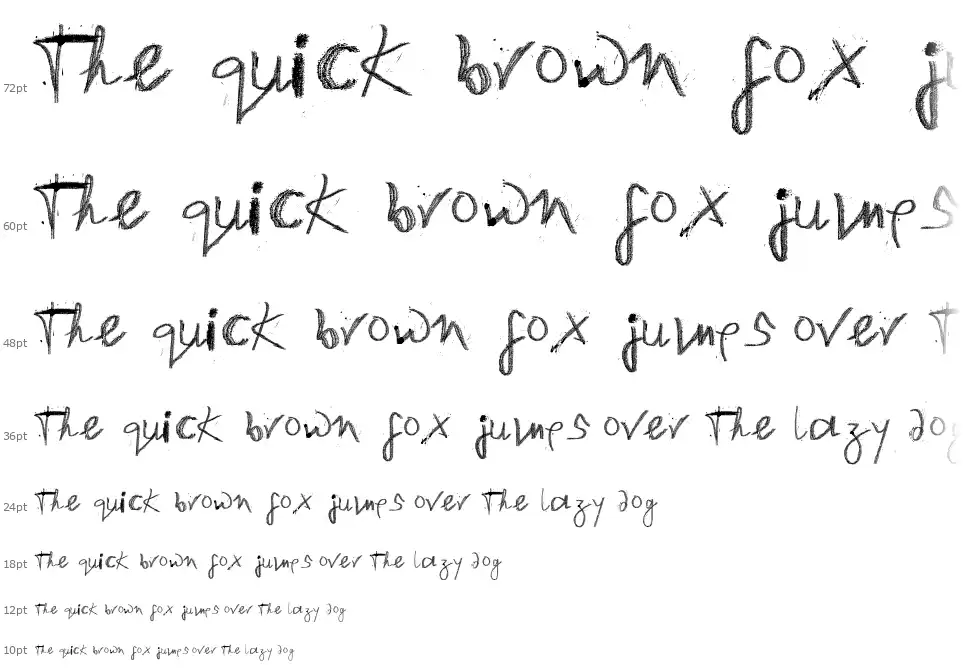 72pt The quick brown fox ju
60pt The quick brown fox jumps
48pt The quick brown fox jumps over T
36pt The quick brown fox jumps over The lazy dog
24pt The quick brown fox jumps over The lazy dog
18pt The quick brown fox jumps over The lazy dog
12pt The quick brown fox jumps over The lazy dog
10pt The quick brown fox jumps over The lazy dog